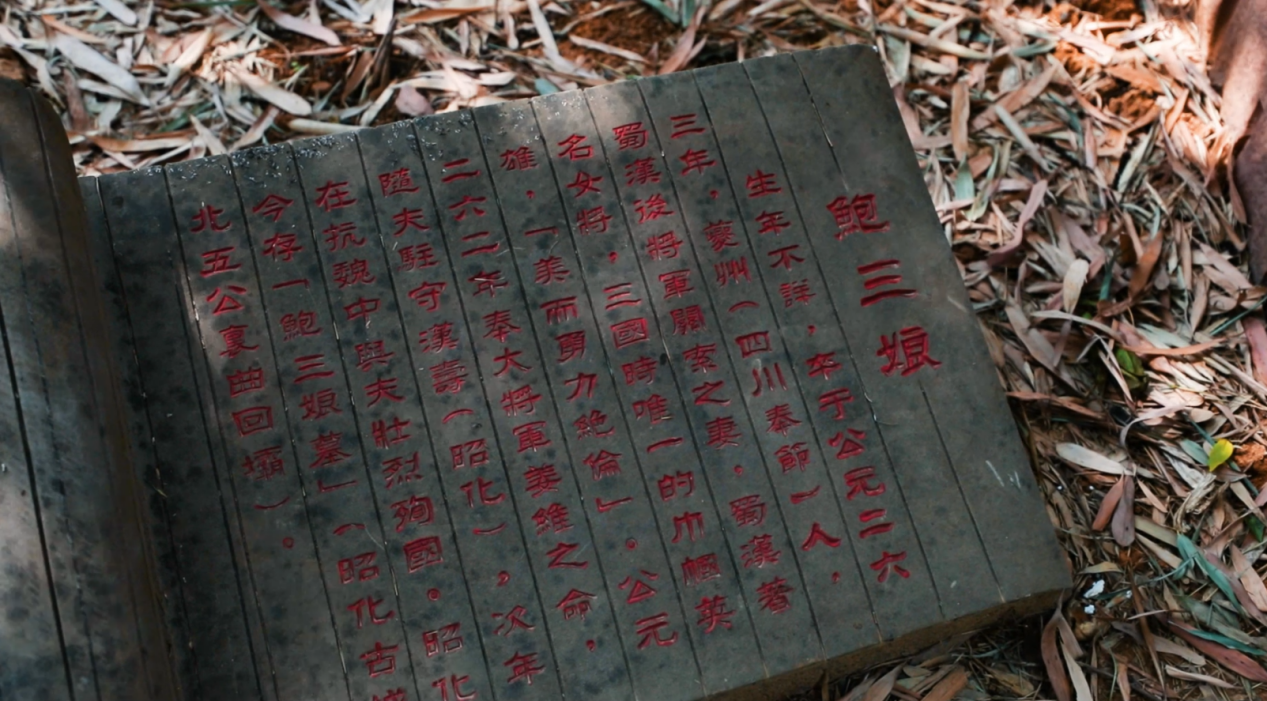 鮑三娘
生年不詳，卒于公元二六
三年，夔州（四川奉節）人，
蜀漢後將軍關索之妻。蜀漢著
名女將，三國時唯一的巾幗英
雄，「美而勇力絶倫」。公元
二六二年奉大將軍姜維之命，
隨夫駐守漢壽（昭化），次年
在抗魏中與夫壯烈殉國。昭化
今存「鮑三娘墓」（昭化古城
北五公裏曲回壩）。